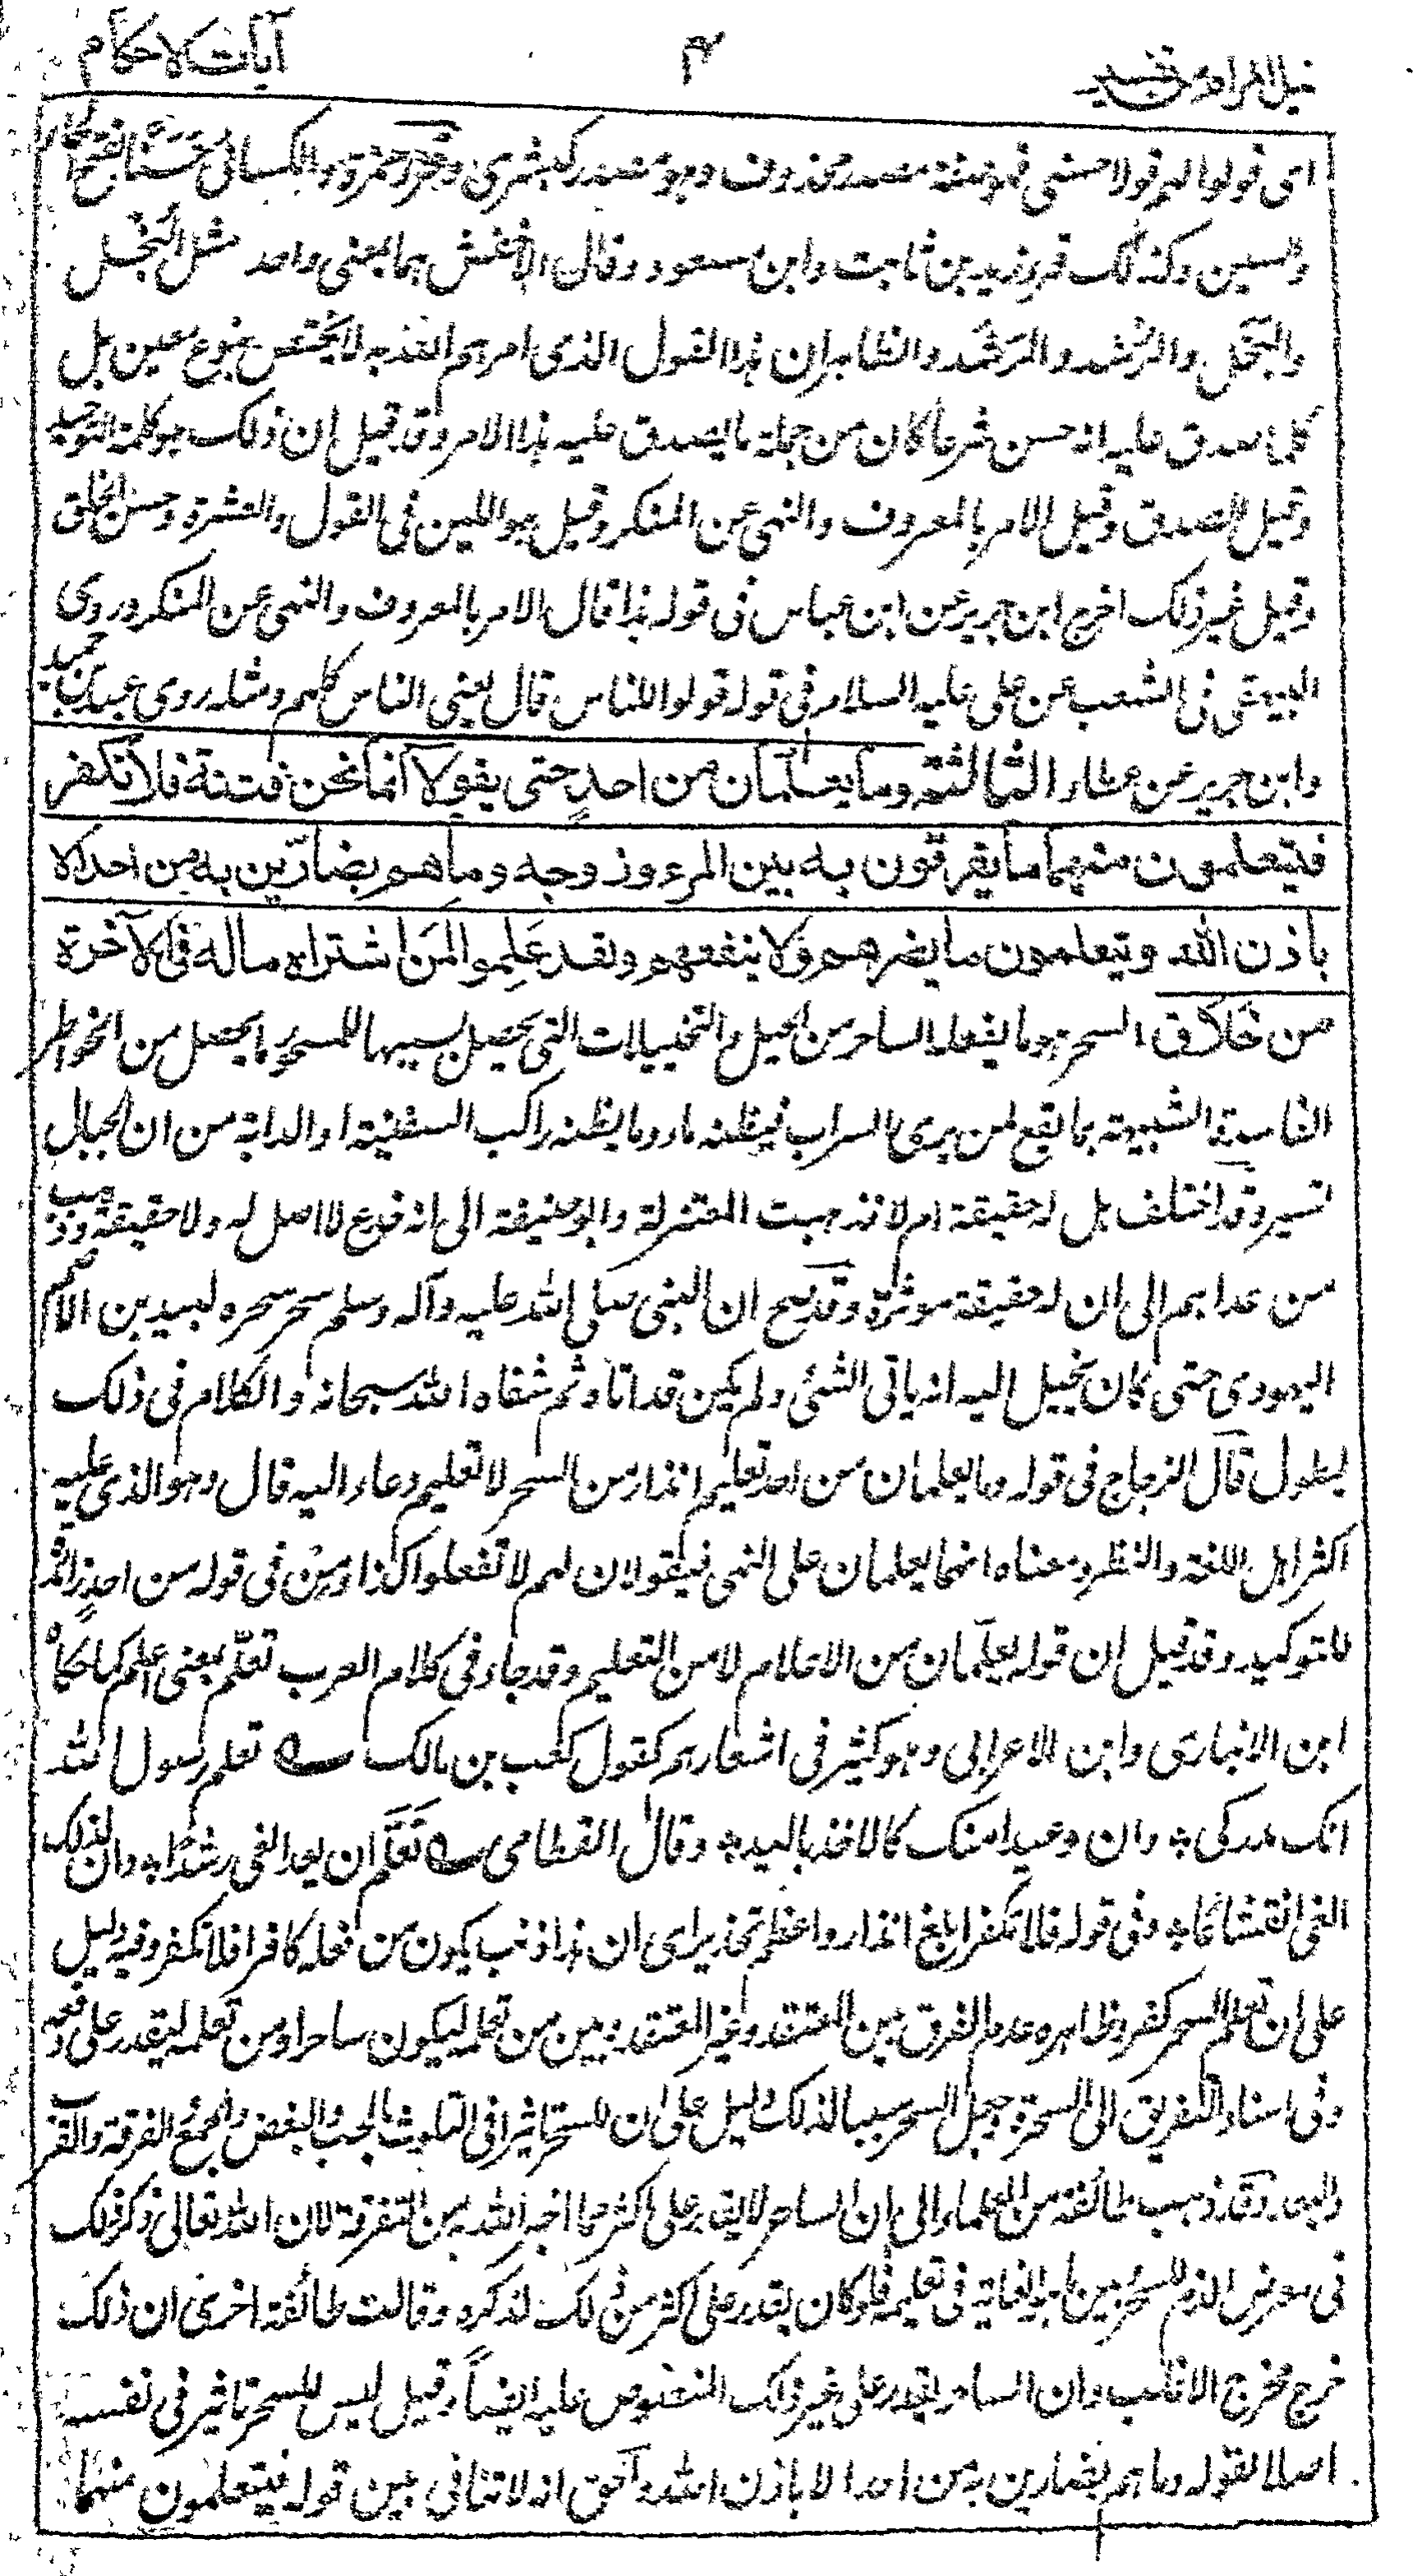 نيل المرام من تفسير
٤
آيات الاحكام
اى قولوا لهم قولا حسنى فهو صفة مصدر محذوف وهو مصدر كبشرى وقرأ حمزة والكسائى حَسَنًا بفتح الحاء
والسين وكذلك قرأ زيد بن ثابت وابن مسعود وقال الاخفش هما بمعنى واحد مثل البُخْل
والبَخَل والرُشد والرَشَد والظاهر ان هذا القول الذى امرهم الله به لا يختص بنوع معين بل
كلما صدق عليه انه حسن شرعا كان من جملة ما يصدق عليه هذا الامر وقد قيل ان ذلك هو كلمة التوحيد
وقيل الصدق وقيل الامر بالمعروف والنهى عن المنكر وقيل هو اللين فى القول والعشرة وحسن الخلق
وقيل غير ذلك اخرج ابن جرير عن ابن عباس فى قوله هذا قال الامر بالمعروف والنهى عن المنكر وروى
البيهقى فى الشعب عن على عليه السلام فى قوله قولوا للناس قال يعنى الناس كلهم ومثله روى عبد بن حميد
وابن جرير عن عطاء الثالثة وما يعلمان من احدٍ حتى يقولا انما نحن فتنة فلا تكفر
فيتعلمون منهما ما يفرقون به بين المرء وزوجه وما هم بضارّين به من احد الا
باذن الله ويتعلمون ما يضرهم ولا ينفعهم ولقد عَلِموا لمَن اشتراه ماله فى الآخرة
من خلاق السحر هو ما يفعله الساحر من الحيل والتخييلات التى تحصل بسببها للمسحور ما يحصل من الخواطر
الفاسدة الشبيهة بما يقع لمن يرى السراب فيظنه ماء وما يظنه راكب السفينة او الدابة من ان الجبال
تسير وقد اختلف هل له حقيقة ام لا فذهبت المعتزلة وابو حنيفة الى انه خدع لا اصل له ولا حقيقة وذهب
من عداهم الى ان له حقيقة مؤثرة وقد صح ان النبى صلى الله عليه وآله وسلم سحر سحره لبيد بن الاعصم
اليهودى حتى كان يخيل اليه انه ياتى الشئ ولم يكن قد اتاه ثم شفاه الله سبحانه والكلام فى ذلك
يطول قال الزجاج فى قوله وما يعلمان من احد تعليم انذار من السحر لا تعليم دعاء اليه قال وهو الذى عليه
اكثر اهل اللغة والنظر ومعناه انهما يعلمان على النهى فيقولان لهم لا تفعلوا كذا ومِن فى قوله من احدٍ زائدة
للتوكيد وقد قيل ان قوله يعلّمان من الاعلام لا من التعليم وقد جاء فى كلام العرب تعلّم بمعنى اعلم كما حكاه
ابن الانبارى وابن الاعرابى وهو كثير فى اشعارهم كقول كعب بن مالك ے تعلم رسول الله
انك مدركى ؞ وان وعيدا منك كالاخذ باليد ؞ وقال القطامى ے تَعَلَّم ان بعد الغى رشدًا ؞ وان لذلك
الغى انقشاعا ؞ وفى قوله فلا تكفر ابلغ انذار واعظم تحذير اى ان هذا ذنب يكون من فعله كافرا فلا تكفر وفيه دليل
على ان تعلم السحر كفر وظاهره عدم الفرق بين المعتقد وغير المعتقد وبين من تعلمه ليكون ساحرا ومن تعلمه ليقدر على دفعه
وفى اسناد التفريق الى السحرة وجعل السحر سببا لذلك دليل على ان للسحر تاثيرا فى القلوب بالحب والبغض والجمع والفرقة والقرب
والبعد وقد ذهب طائفة من العلماء الى ان الساحر لا يقدر على اكثر مما اخبر الله به من التفرقة لان الله تعالى ذكر ذلك
فى معرض الذم للسحر وبين ما هو الغاية فى تعليمه فلو كان يقدر على اكثر من ذلك لذكره وقالت طائفة اخرى ان ذلك
خرج مخرج الاغلب وان الساحر يقدر على غير ذلك المنصوص عليه ايضاً وقيل ليس للسحر تاثير فى نفسه
اصلا لقوله وما هم بضارين به من احد الا باذن الله والحق انه لا تنافى بين قوله فيتعلمون منهما